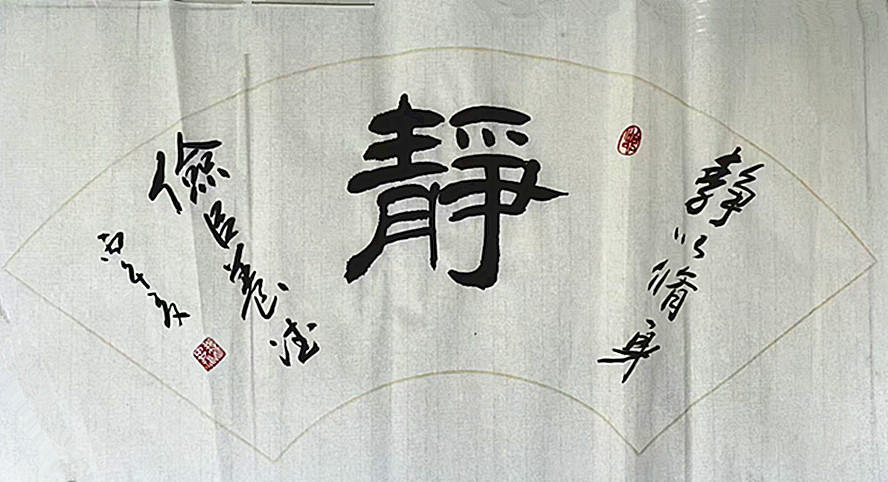 靜以脩身
靜
儉以養德